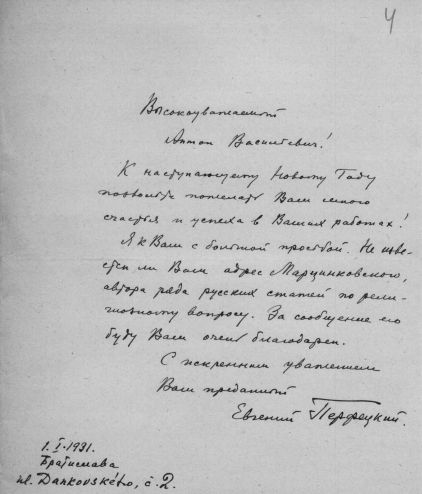 4
Высокоуважаемый
Антон Васильевич!
К наступающему Новому Году
позвольте пожелать Вам много
счастья и успеха в Ваших работах!
Я к Вам с большой просьбой. Не изве-
стен ли Вам адрес Марцинковского,
автора ряда русских статей по рели-
гиозному вопросу. За сообщение его
буду Вам очень благодарен.
С искренним уважением
Вам преданный
Евгений Перфецкий.
1. I. 1931.
Братислава
ul. Dankovského, č. 2.